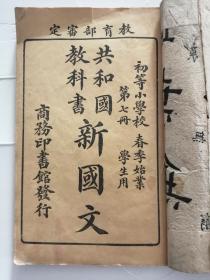 教育部審定
初等小學校 春季始業
第七冊 學生用
共和國
教科書
新國文
商務印書館發行